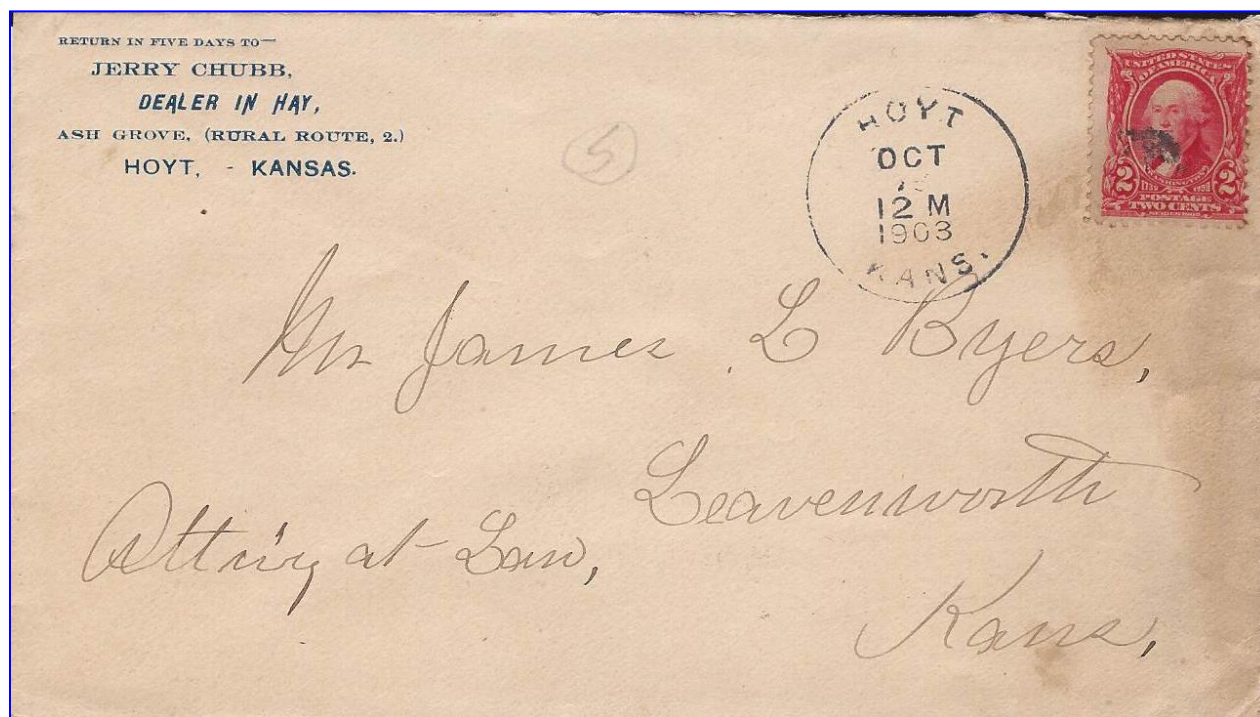 RETURN IN FIVE DAYS TO—
JERRY CHUBB,
DEALER IN HAY,
ASH GROVE, (RURAL ROUTE, 2.)
HOYT, - KANSAS.
5
HOYT
OCT
12 M
1903
KANS.
UNITED STATES
OF AMERICA
WASHINGTON
2 2
POSTAGE
TWO CENTS
SERIES 1902
Mr James L Byers,
Leavenworth
Att'ny at Law,
Kans,